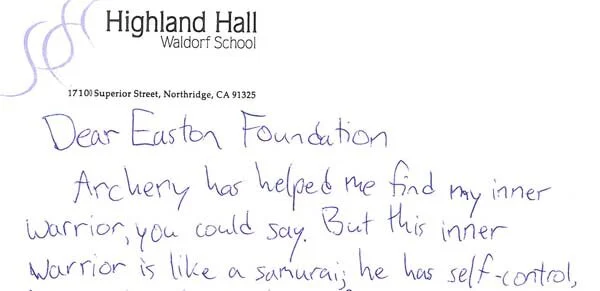 Highland Hall
Waldorf School
17100 Superior Street, Northridge, CA 91325
Dear Easton Foundation
Archery has helped me find my inner
warrior, you could say. But this inner
warrior is like a samurai; he has self-control,